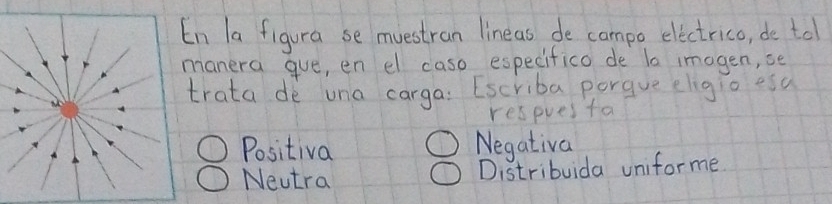 En la figura se muestran lineas de campo eléctrico, de tal
manera que, en el caso especifico de la imagen, se
trata de una carga: Escriba porque eligio esa
respuesta
Positiva
Negativa
Neutra
Distribuida uniforme